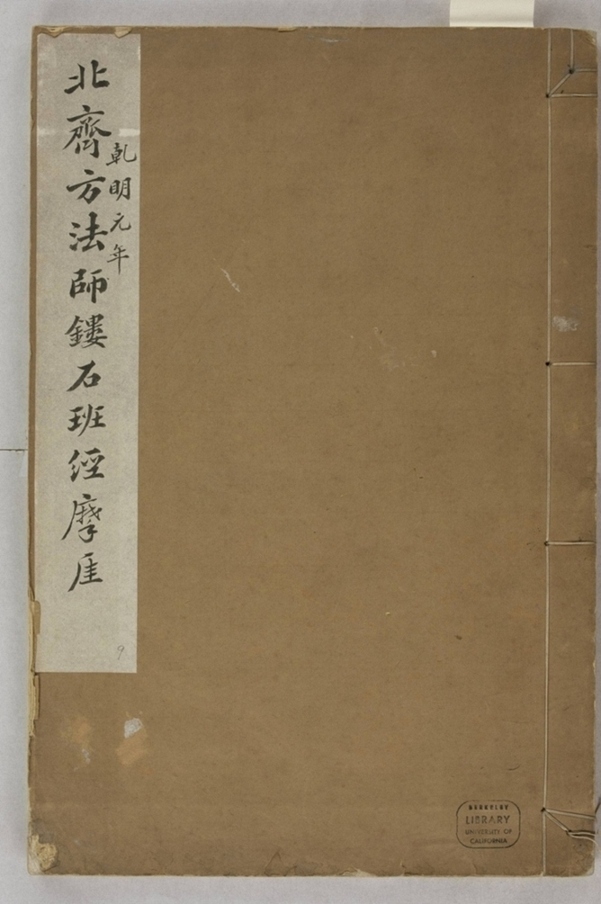 北齊方法師鏤石班經摩厓
乹明元年
9
BERKELEY
LIBRARY
UNIVERSITY OF
CALIFORNIA